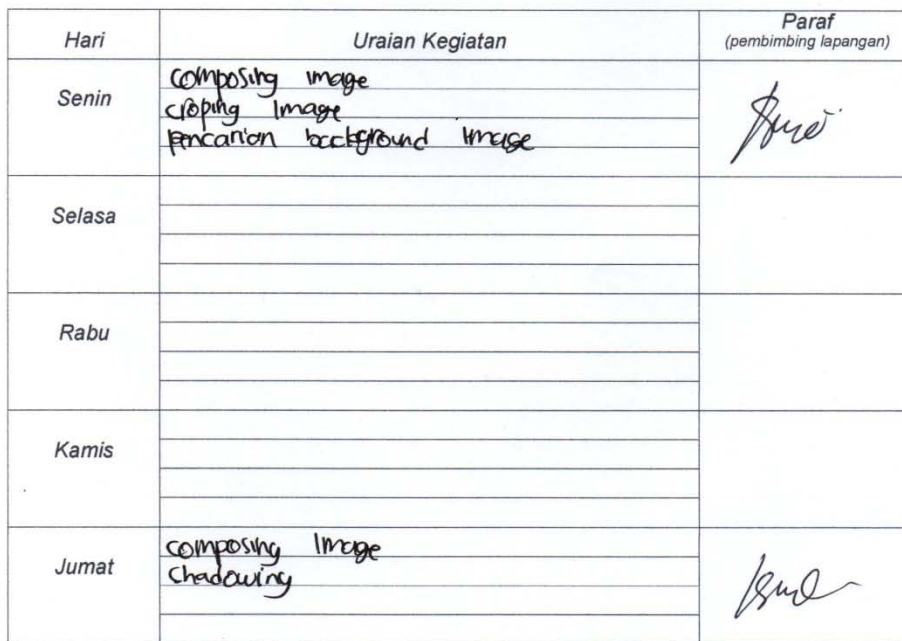 Hari Uraian Kegiatan Paraf
(pembimbing lapangan)
Senin
composing image
croping Image
pencarian background Image
Selasa
Rabu
Kamis
Jumat
composing Image
Chadowing